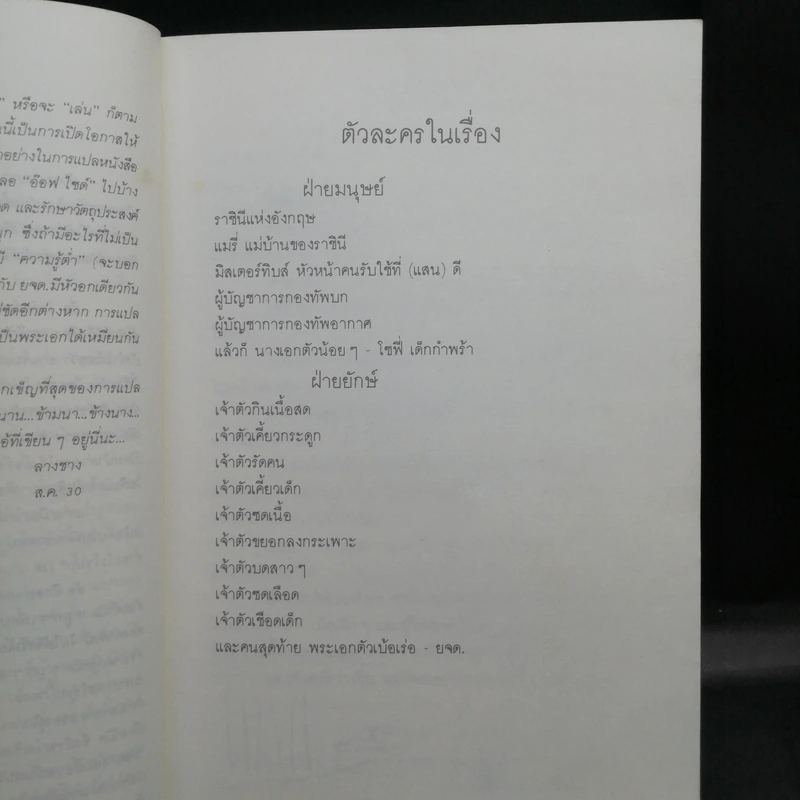 หรือจะ "เล่น" ก็ตาม
นี้เป็นการเปิดโอกาสให้
อย่างในการแปลหนังสือ
"อ๊อฟ ไซด์" ไปบ้าง
และรักษาวัตถุประสงค์
ซึ่งถ้ามีอะไรที่ไม่เป็น
"ความรู้ต่ำ" (จะบอก
กับ ยจด.มีหัวอกเดียวกัน
ชัดอีกต่างหาก การแปล
เป็นพระเอกได้เหมือนกัน
เข็ญที่สุดของการแปล
นาน...ข้ามนา...ข้างนาง...
ที่เขียน ๆ อยู่นี่นะ...
ลางชาง
ส.ค. 30
ตัวละครในเรื่อง
ฝ่ายมนุษย์
ราชินีแห่งอังกฤษ
แมรี่ แม่บ้านของราชินี
มิสเตอร์ทิบส์ หัวหน้าคนรับใช้ที่ (แสน) ดี
ผู้บัญชาการกองทัพบก
ผู้บัญชาการกองทัพอากาศ
แล้วก็ นางเอกตัวน้อย ๆ - โซฟี่ เด็กกำพร้า
ฝ่ายยักษ์
เจ้าตัวกินเนื้อสด
เจ้าตัวเคี้ยวกระดูก
เจ้าตัวรัดคน
เจ้าตัวเคี้ยวเด็ก
เจ้าตัวซดเนื้อ
เจ้าตัวขยอกลงกระเพาะ
เจ้าตัวบดสาว ๆ
เจ้าตัวซดเลือด
เจ้าตัวเชือดเด็ก
และคนสุดท้าย พระเอกตัวเบ้อเร่อ - ยจด.